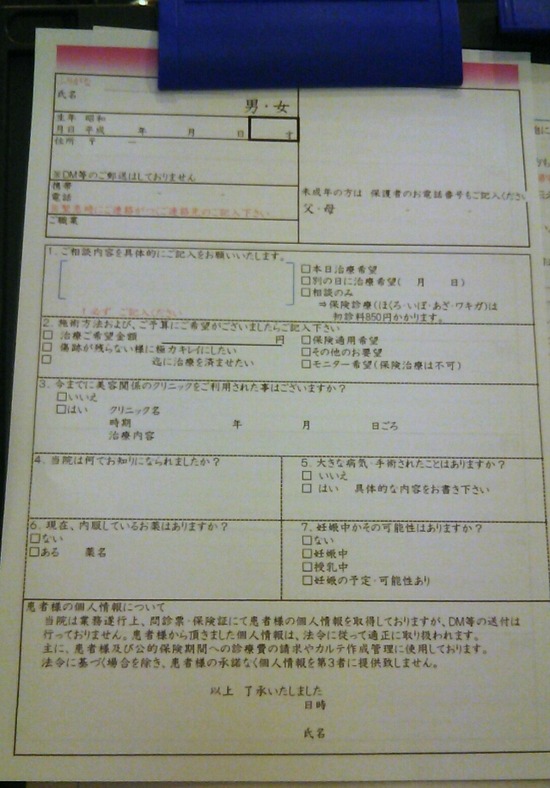 ふりがな
氏名
男・女
生年 昭和
月日 平成 年 月 日 才
住所 〒 ー
※DM等のご郵送はしておりません
携帯
電話
ご職業
未成年の方は 保護者のお電話番号もご記入ください
父・母
1. ご相談内容を具体的にご記入をお願いいたします。
必ず、ご記入ください
□本日治療希望
□別の日に治療希望( 月 日)
□相談のみ
⇒保険診療(ほくろ・いぼ・あざ・ワキガ)は
初診料850円かかります。
2. 施術方法および、ご予算にご希望がございましたらご記入下さい
□ 治療ご希望金額 円
□ 傷跡が残らない様に極力キレイにしたい
□ 迄に治療を済ませたい
□保険適用希望
□その他のお要望
□モニター希望(保険治療は不可)
3. 今までに美容関係のクリニックをご利用された事はございますか?
□いいえ
□はい クリニック名
時期 年 月 日ごろ
治療内容
4. 当院は何でお知りになられましたか?
5. 大きな病気・手術されたことはありますか?
□ いいえ
□ はい 具体的な内容をお書き下さい
6. 現在、内服しているお薬はありますか?
□ない
□ある 薬名
7. 妊娠中かその可能性はありますか?
□ない
□妊娠中
□授乳中
□妊娠の予定・可能性あり
患者様の個人情報について
当院は業務遂行上、問診票・保険証にて患者様の個人情報を取得しておりますが、DM等の送付は
行っておりません。患者様から頂きました個人情報は、法令に従って適正に取り扱われます。
主に、患者様及び公的保険期間への診療費の請求やカルテ作成管理に使用しております。
法令に基づく場合を除き、患者様の承諾なく個人情報を第3者に提供致しません。
以上 了承いたしました
日時
氏名